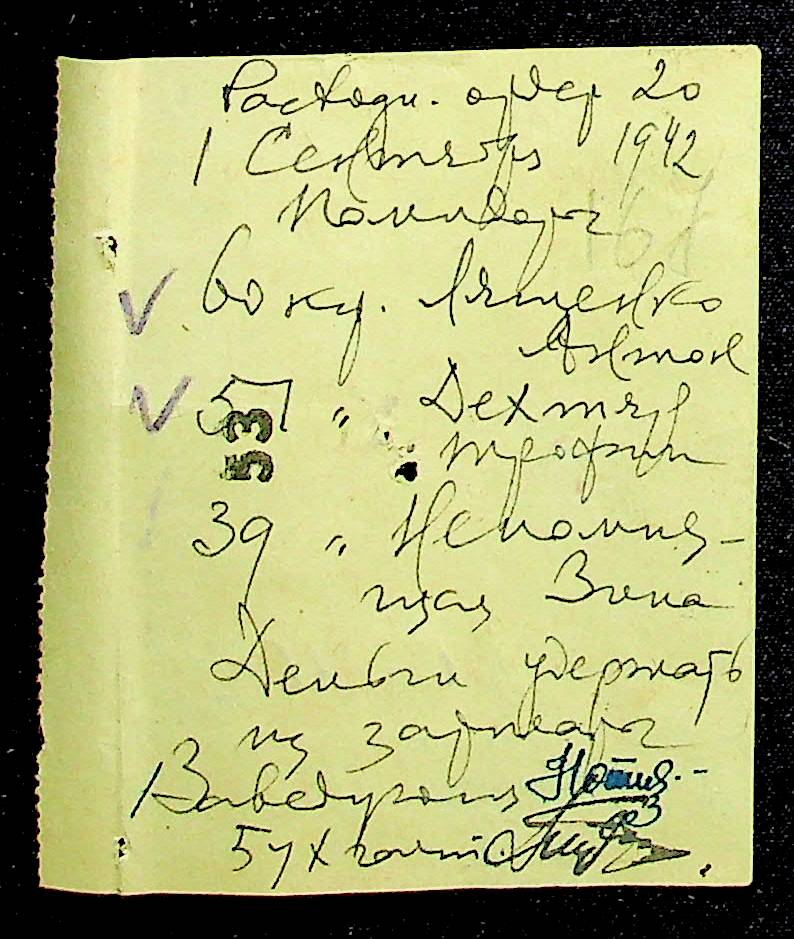 Расходн. ордер 20
1 Сентября 1942
Помидоры
60 кг. Лященко
Антон
51 " Дехтяр
53
Трофим
39 " Непомня-
щая Зина
Деньги удержать
из зарплаты
Заведующий
Бухгалтер